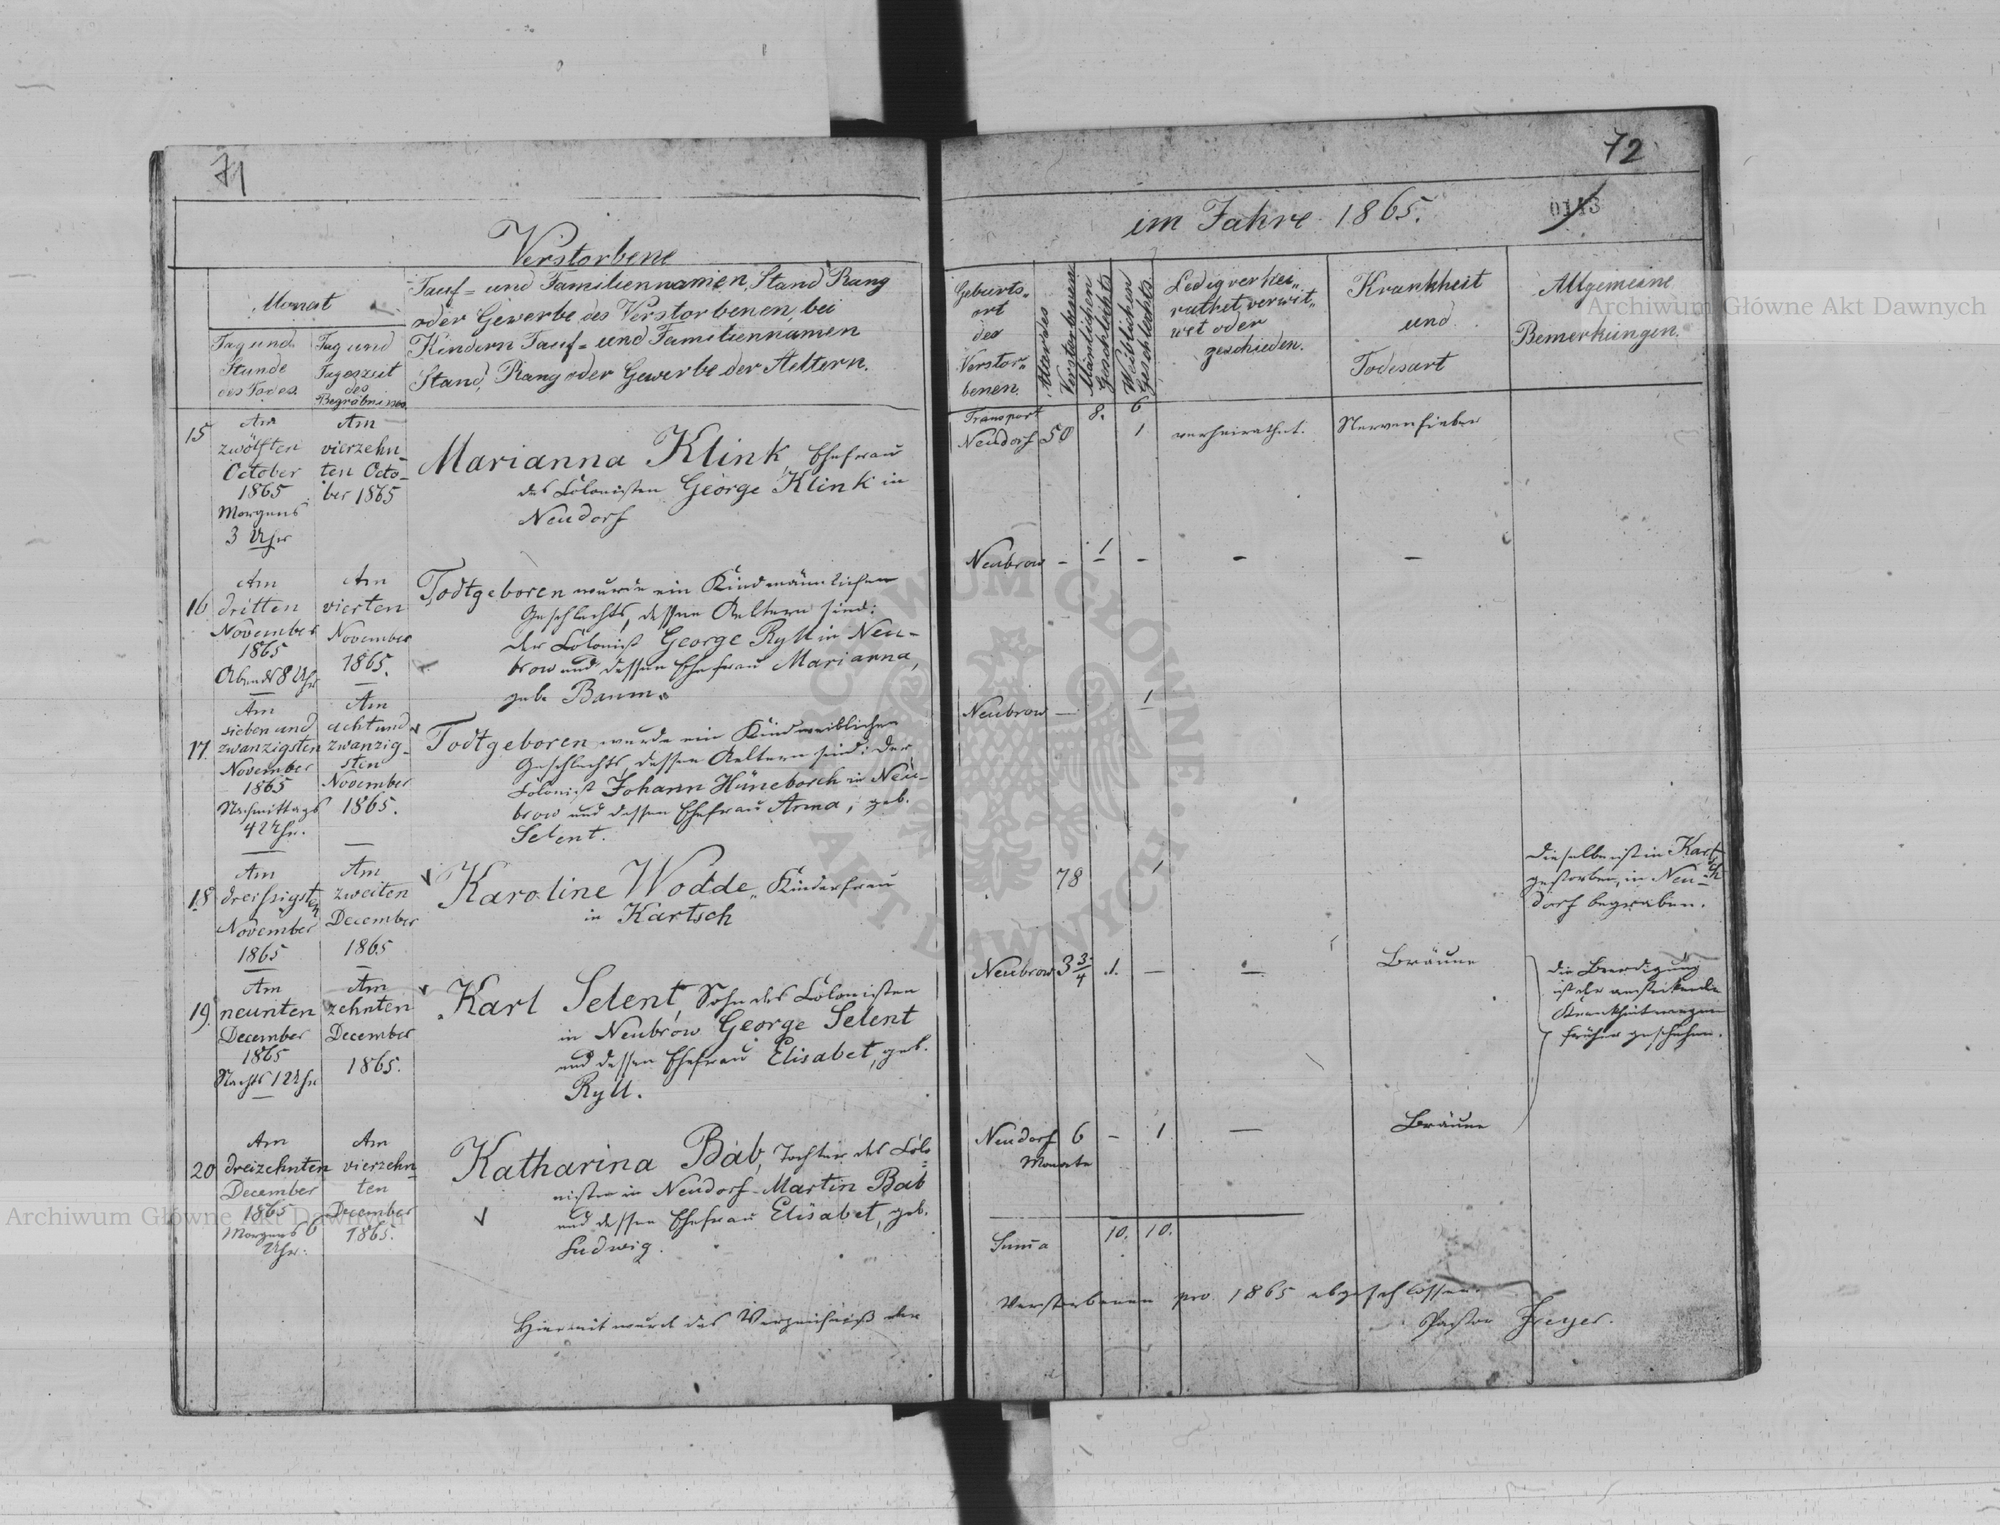 71
Verstorbene
Monat
Tag und
Stunde
des Todes.
Tag und
Tageszeit
des
Begräbnisses
Tauf- und Familiennamen, Stand Rang
oder Gewerbe des Verstorbenen, bei
Kindern Tauf- und Familiennamen
Stand, Rang oder Gewerbe der Aeltern.
15
Am
zwölften
October
1865
Morgens
3 Uhr
Am
vierzehn-
ten Octo-
ber 1865
Marianna Klink, Ehefrau
des Colonisten George Klink in
Neudorf
16
Am
dritten
November
1865
Abends 8 Uhr
Am
vierten
November
1865.
Todtgeboren wurde ein Kind männlichen
Geschlechts, dessen Aeltern sind:
der Colonist George Ryll in Neu-
brow und dessen Ehefrau Marianna,
geb. Baum.
17.
Am
sieben und
zwanzigsten
November
1865
Nachmittags
4 Uhr.
Am
acht und
zwanzig-
sten
November
1865.
Todtgeboren wurde ein Kind weiblichen
Geschlechts, dessen Aeltern sind: der
Colonist Johann Hüneborch in Neu-
brow und dessen Ehefrau Anna, geb.
Selent.
18
Am
dreissigsten
November
1865
Am
zweiten
December
1865
Karoline Wodde, Kinderfrau
in Kartsch
19.
Am
neunten
December
1865
Nachts 1 Uhr
Am
zehnten
December
1865.
Karl Selent, Sohn des Colonisten
in Neubrow George Selent
und dessen Ehefrau Elisabet, geb.
Ryll.
20
Am
dreizehnten
December
1865
Morgens 6
Uhr.
Am
vierzehn-
ten
December
1865.
Katharina Bab, Tochter des Colo-
nisten in Neudorf Martin Bab
und dessen Ehefrau Elisabet, geb.
Ludwig.
Hiermit wurde das Verzeichniß der
72
0143
im Jahre 1865.
Geburts-
ort
des
Verstor-
benen.
Alter des
Verstorbenen
Männlichen
Geschlechts
Weiblichen
Geschlechts.
Ledig verhei-
rathet, verwit-
wet oder
geschieden.
Krankheit
und
Todesart
Allgemeine
Bemerkungen.
Transport 8. 6
Neudorf 50 1. verheirathet. Nervenfieber
Neubrow - 1 - - -
Neubrow - 1
78 1
Dieselbe ist in Kartsch
gestorben, in Neu-
dorf begraben.
Neubrow 3 3/4 1. - - Bräune
Die Beerdigung
ist der ansteckenden
Krankheit wegen
früher geschehen.
Neudorf 6 - 1 - Bräune
Monate
Suma 10. 10.
Verstorbenen pro 1865 abgeschlossen.
Pastor Freyer.
Archiwum Główne Akt Dawnych
Archiwum Główne Akt Dawnych
ARCHIWUM GŁÓWNE AKT DAWNYCH